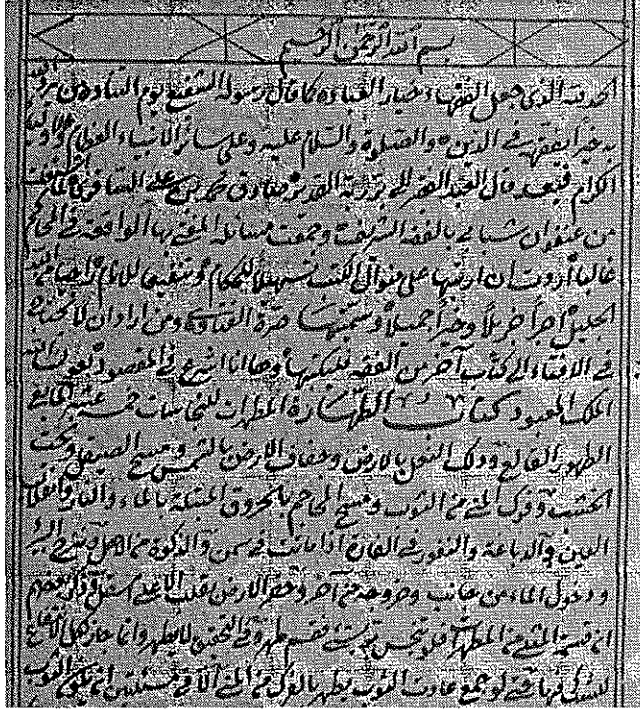 بسم الله الرحمن الرحيم
الحمد لله الذي جعل الفقهاء خيار العباد كما قال رسوله الشفيع يوم التناد من يرد الله
به خيرا يفقهه في الدين والصلوة والسلام عليه وعلى سائر الانبياء العظام
الكرام فبعد قال العبد الفقير الى ربه القدير صادق محمد بن علي الساقزي لما
من عنفوان شبابي بالفقه الشريف وجمعت مسائله المفتى بها الواقعة في المحاكم
غالبا اردت ان ارتبها على منوال الكتب تسهيلا للحكام
الجليل اجرا جزيلا وخيرا جميلا وسميتها صرة الفتاوى ومن اراد ان لا يحتاج
في الافتاء الى كتاب آخر من الفقه فليكتبها وها انا اشرع في المقصود بعون الله
الملك المعبود كتاب الطهارة المطهرات للنجاسات خمسة عشر المائع
الطهور القالع ودلك النعل بالارض وجفاف الارض بالشمس ومسح الصيقل ونحت
الخشب وفرك المني من الثوب ومسح المحاجم بالخروق المبتلة بالماء والنار وانقلاب
العين والدباغة والتقور في الفارة اذا ماتت في سمن والذكوة من الاهل ونزح البئر
ودخول الماء من جانب وخروجه من آخر وحفر الارض بقلب الاعلى اسفل
ان قسمة المثلي من المطهرات فلو تنجس بر فقسم طهر وفي التحقيق لا يطهر وانما جاز لكل الانتفاع
للشك فيها حتى لو جمع عادت الثوب يطهر بالفرك من المني الا في مسئلتين ان يكون الثوب